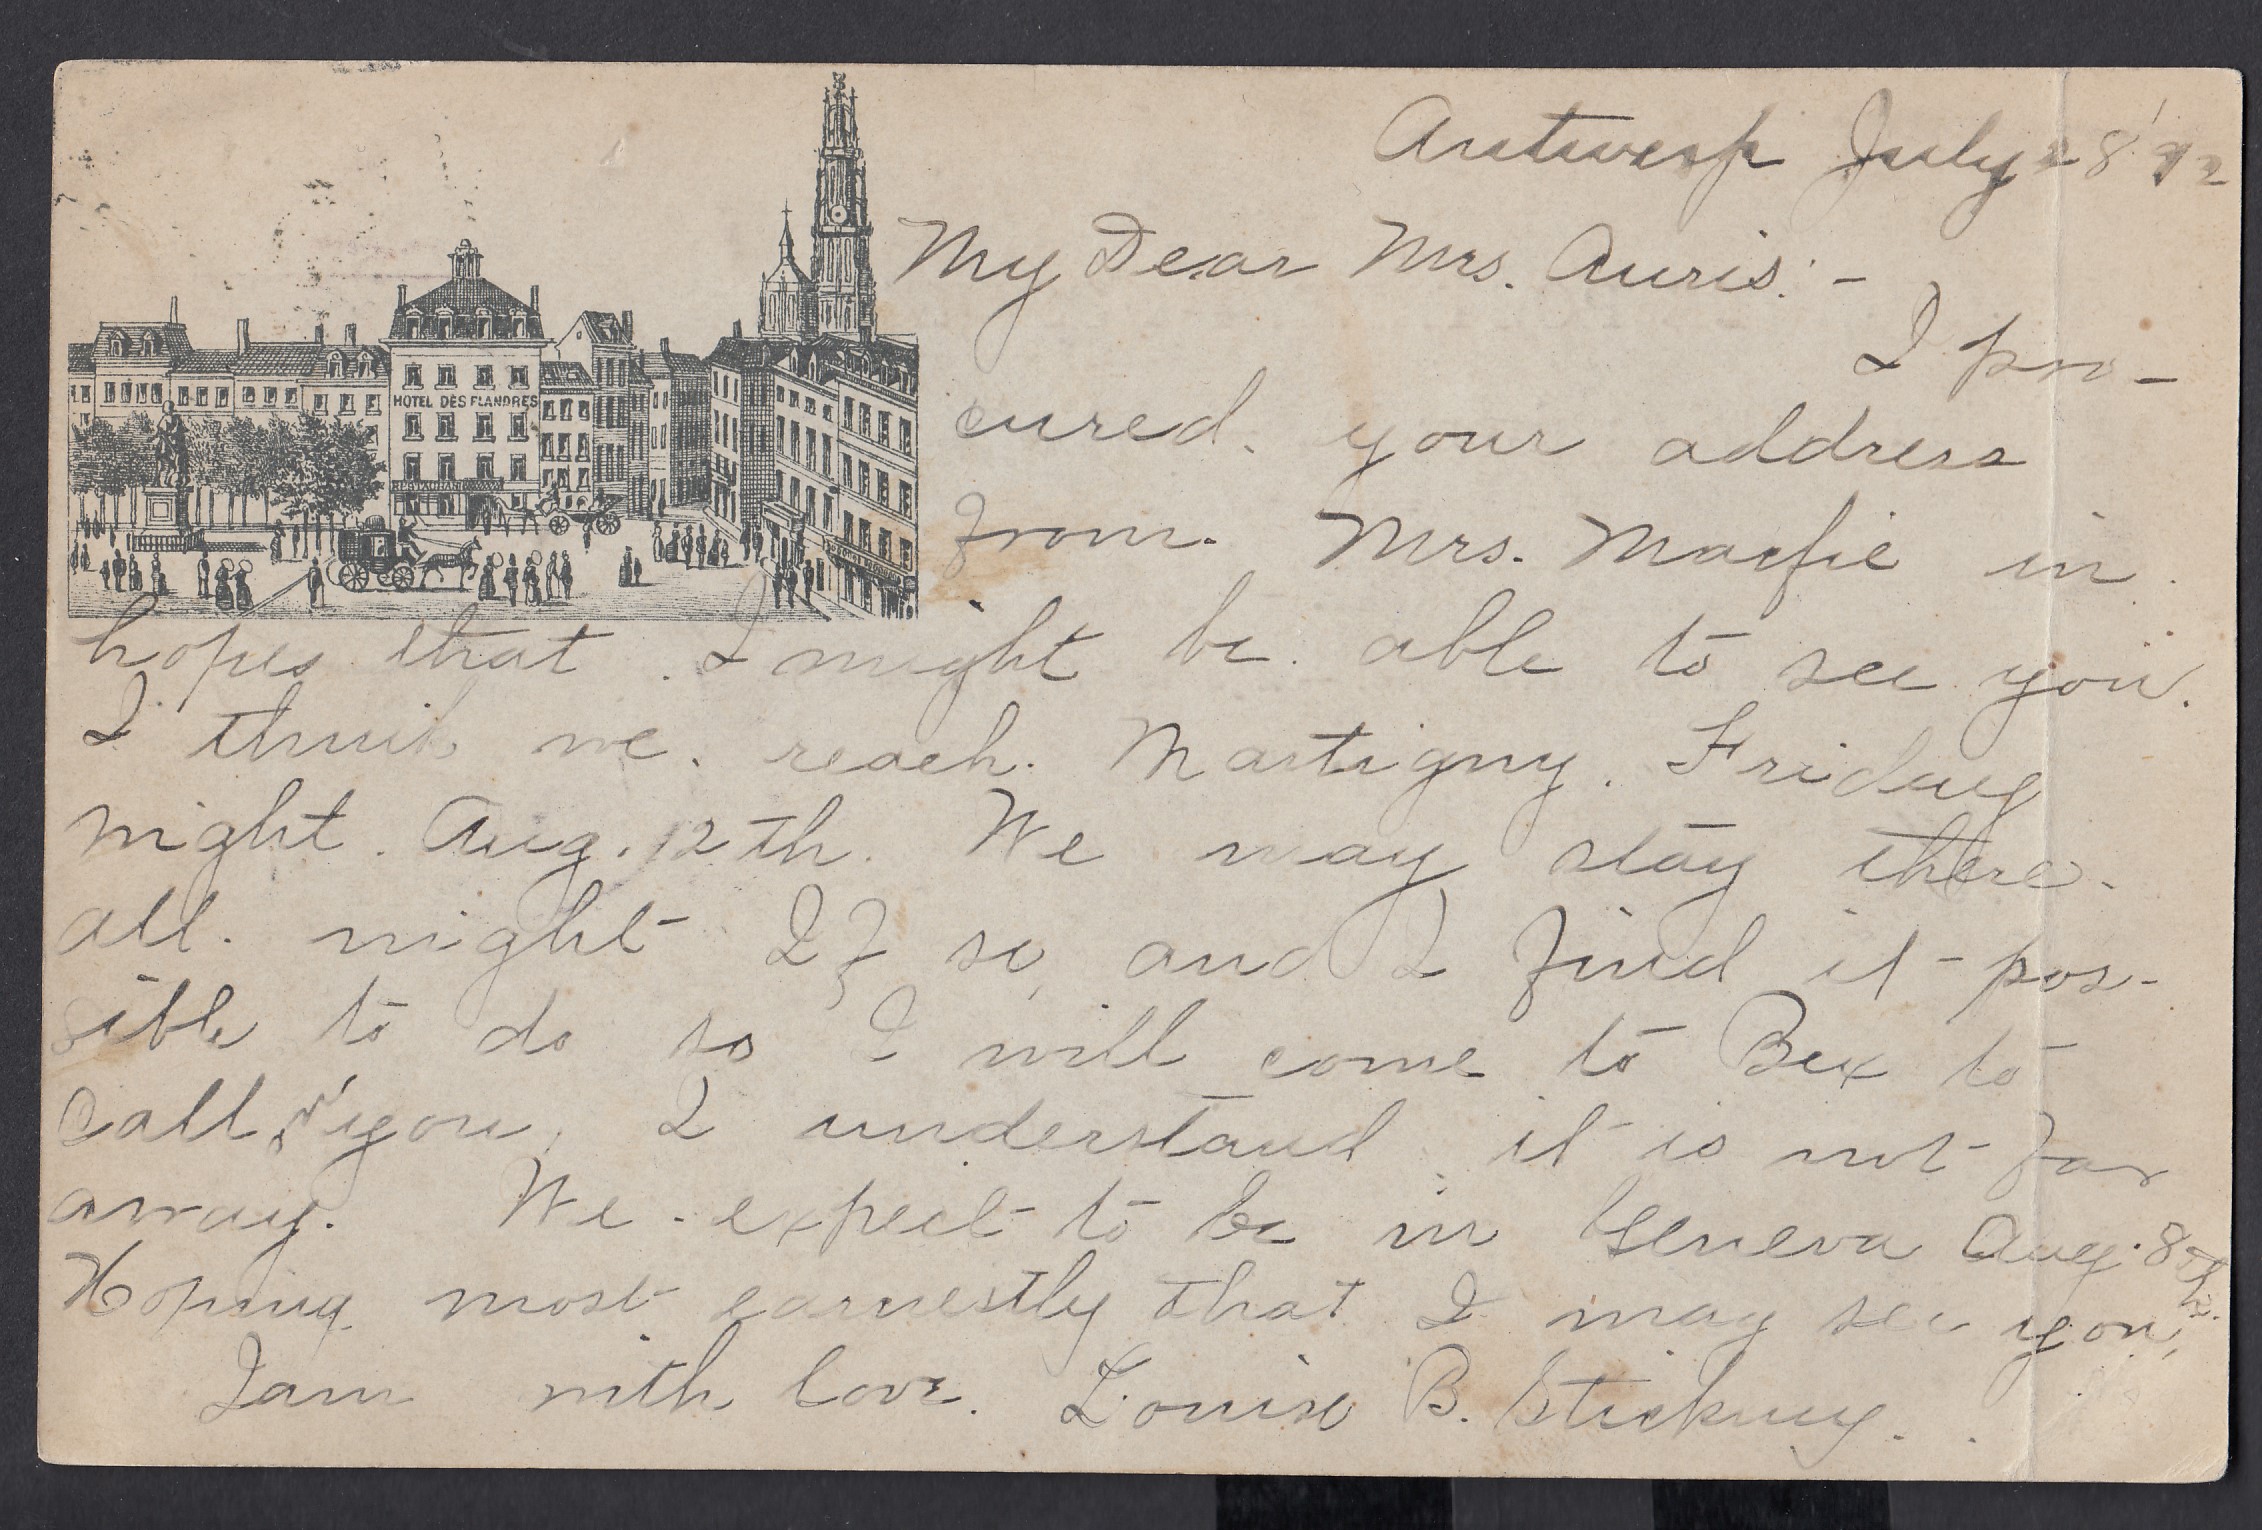 Antwerp July 28 '92
My Dear Mrs. Auris: -
I pro-
HOTEL DES FLANDRES
cured your address
RESTAURANT
from Mrs. Macfie in
hopes that I might be able to see you.
I think we reach Martigny Friday
night Aug. 12th. We may stay there
all night If so, and I find it pos-
sible to do so I will come to Bex to
call on you, I understand it is not far
away. We expect to be in Geneva Aug. 8th.
Hoping most earnestly that I may see you,
I am with love. Louise B. Stickney.